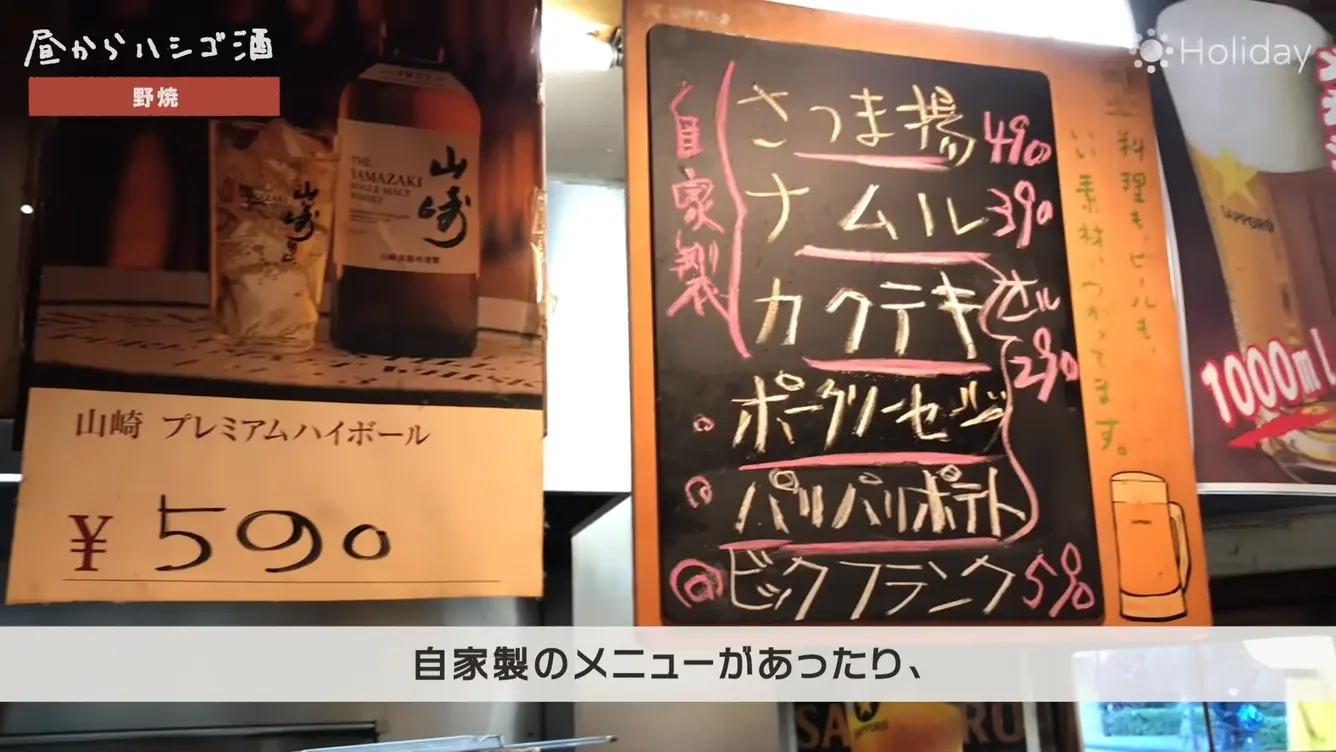 昼からハシゴ酒
野焼
Holiday
THE
YAMAZAKI
SINGLE MALT
WHISKY
山崎
山崎
山崎 プレミアムハイボール
¥590
自家製
さつま揚 490
ナムル 390
カクテキ
ポークソーセージ
パリパリポテト
290
ビックフランク 590
料理も、ビールも、
いい素材、つかってます。
SAPPORO
1000ml
自家製のメニューがあったり、